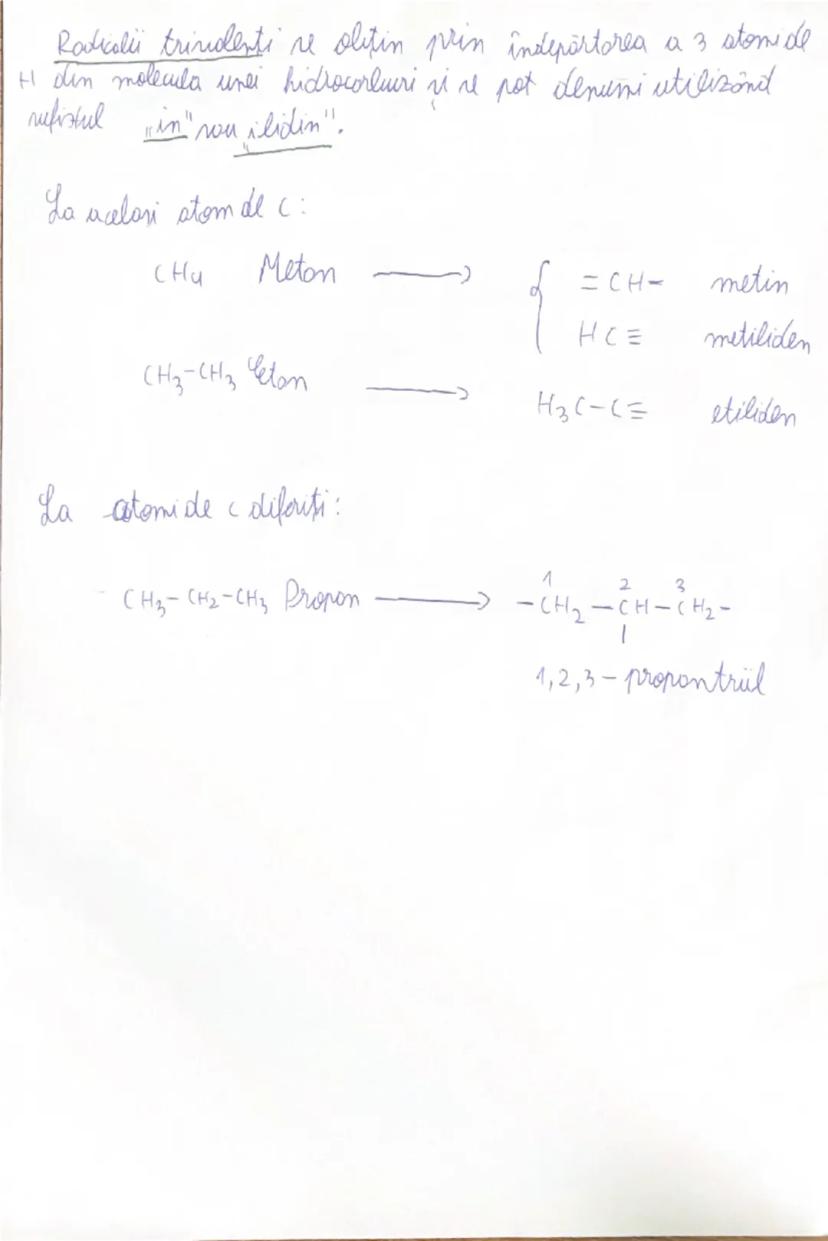 Radicalii trivalenți se obțin prin îndepărtarea a 3 atomi de
H din molecula unei hidrocarburi și se pot denumi utilizând
sufixul „in" sau „ilidin".
La același atom de C:
CH₄ Metan ⟶ { =CH- metin
HC≡ metiliden
CH₃-CH₃ Etan ⟶ H₃C-C≡ etiliden
La atomi de C diferiți:
CH₃-CH₂-CH₃ Propan ⟶ -CH₂-CH-CH₂-
1 2 3
1,2,3-propantriil